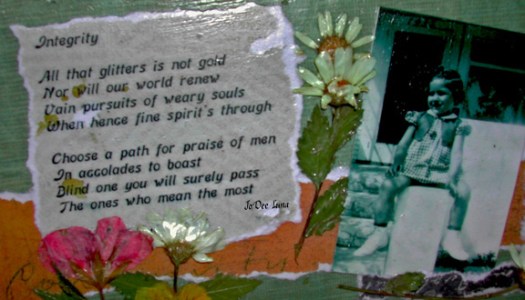 Integrity
All that glitters is not gold
Nor will our world renew
Vain pursuits of weary souls
When hence fine spirit's through
Choose a path for praise of men
In accolades to boast
Blind one you will surely pass
The ones who mean the most